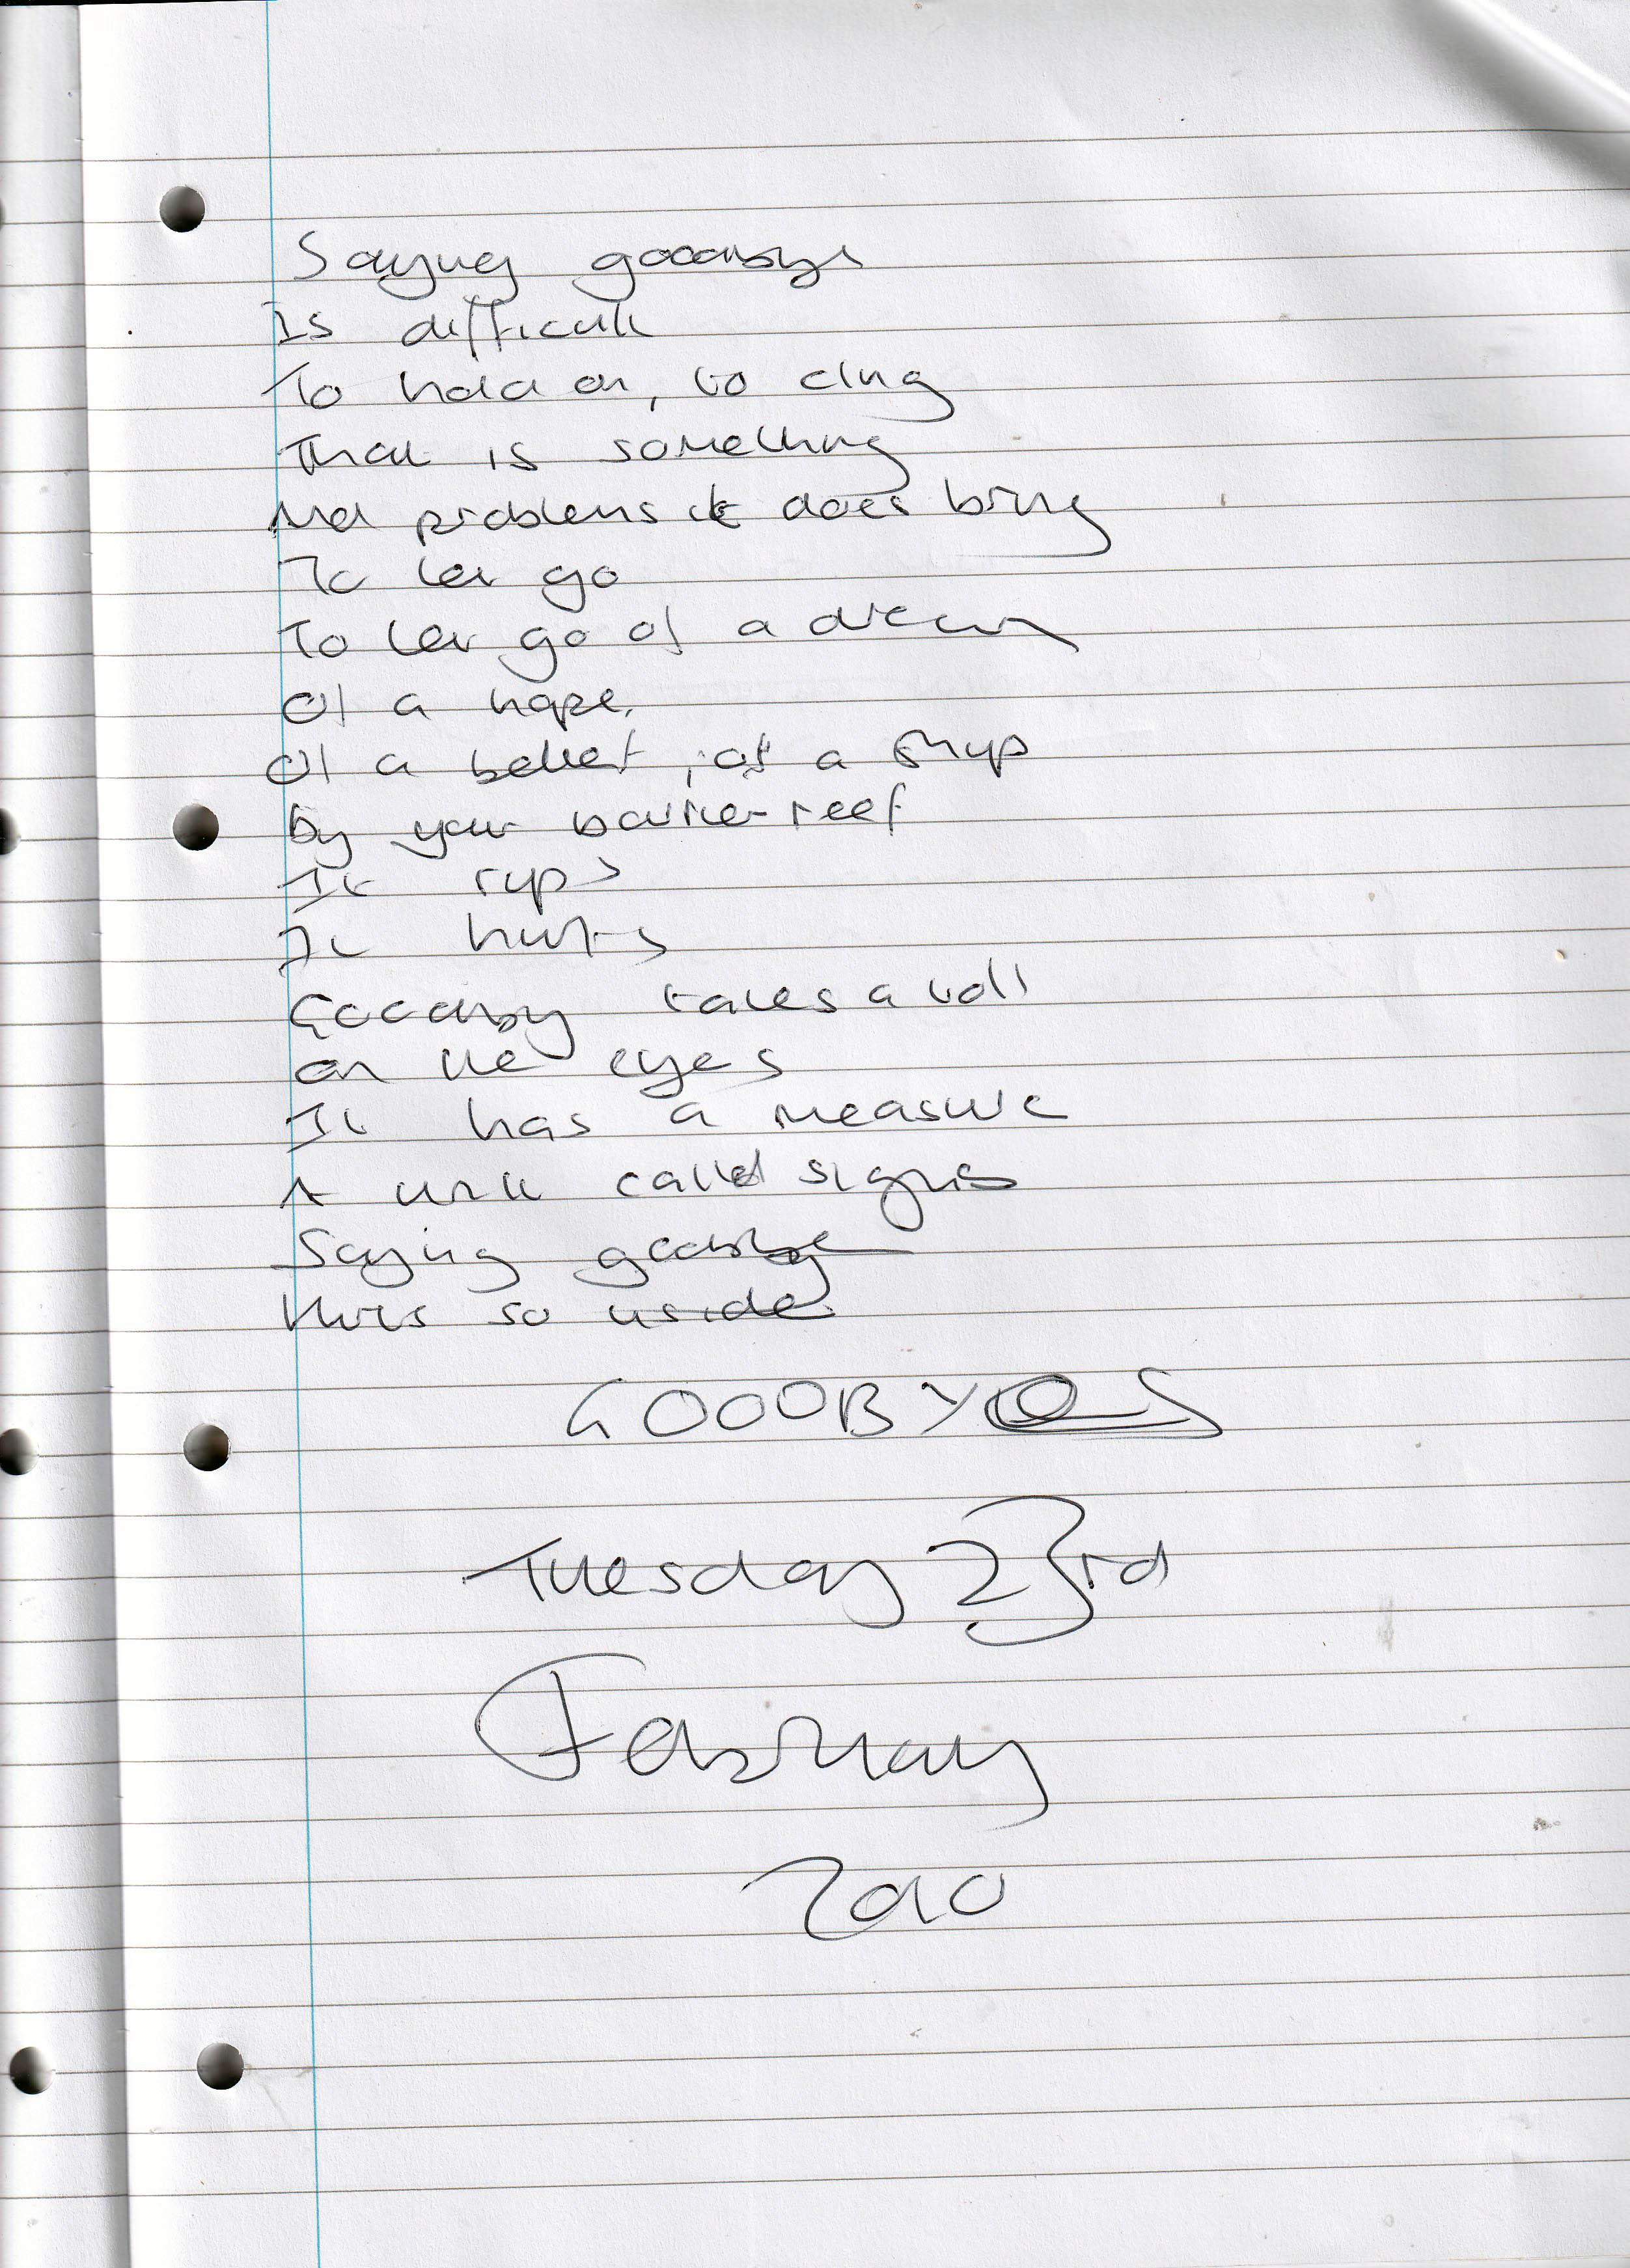 Saying goodbye
Is difficult
To hold on, to cling
That is something
problems it does bring
To let go
To let go of a dream
Of a hope.
Of a belief, of a ship
By your barrier reef
It rips
It hurts
Goodby takes a toll
on the eyes
It has a measure
A unit called sighs
Saying goodbye
Hurts so inside
GOODBYES
Tuesday 23rd
February
2010